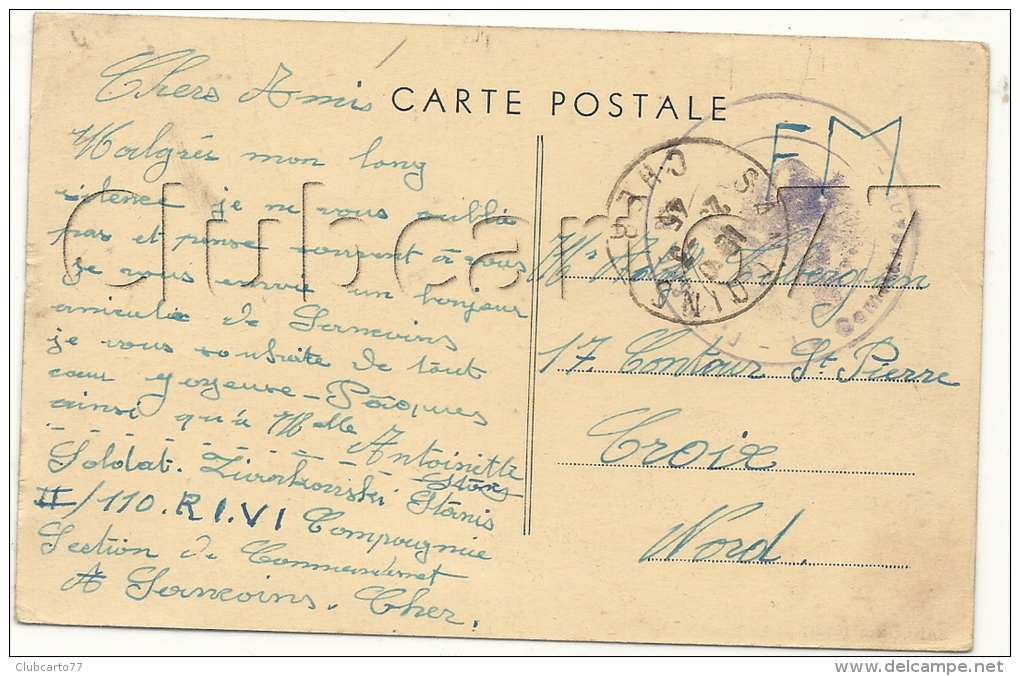 Chers Amis
Malgrés mon long
silence je ne vous oublie
pas et pense souvent à vous
je vous envoie un bonjour
amicale de Sancoins
je vous souhaite de tout
cœur joyeuse - Pâques
ainsi qu'à Melle Antoinette
Soldat. Stanis
II/110. R I. VI Compagnie
Section de Commandement
A Sancoins. Cher.
CARTE POSTALE
FM
17. Contour St Pierre
Croix
Nord.
CHER
Clubcarto77
Clubcarto77
www.delcampe.net